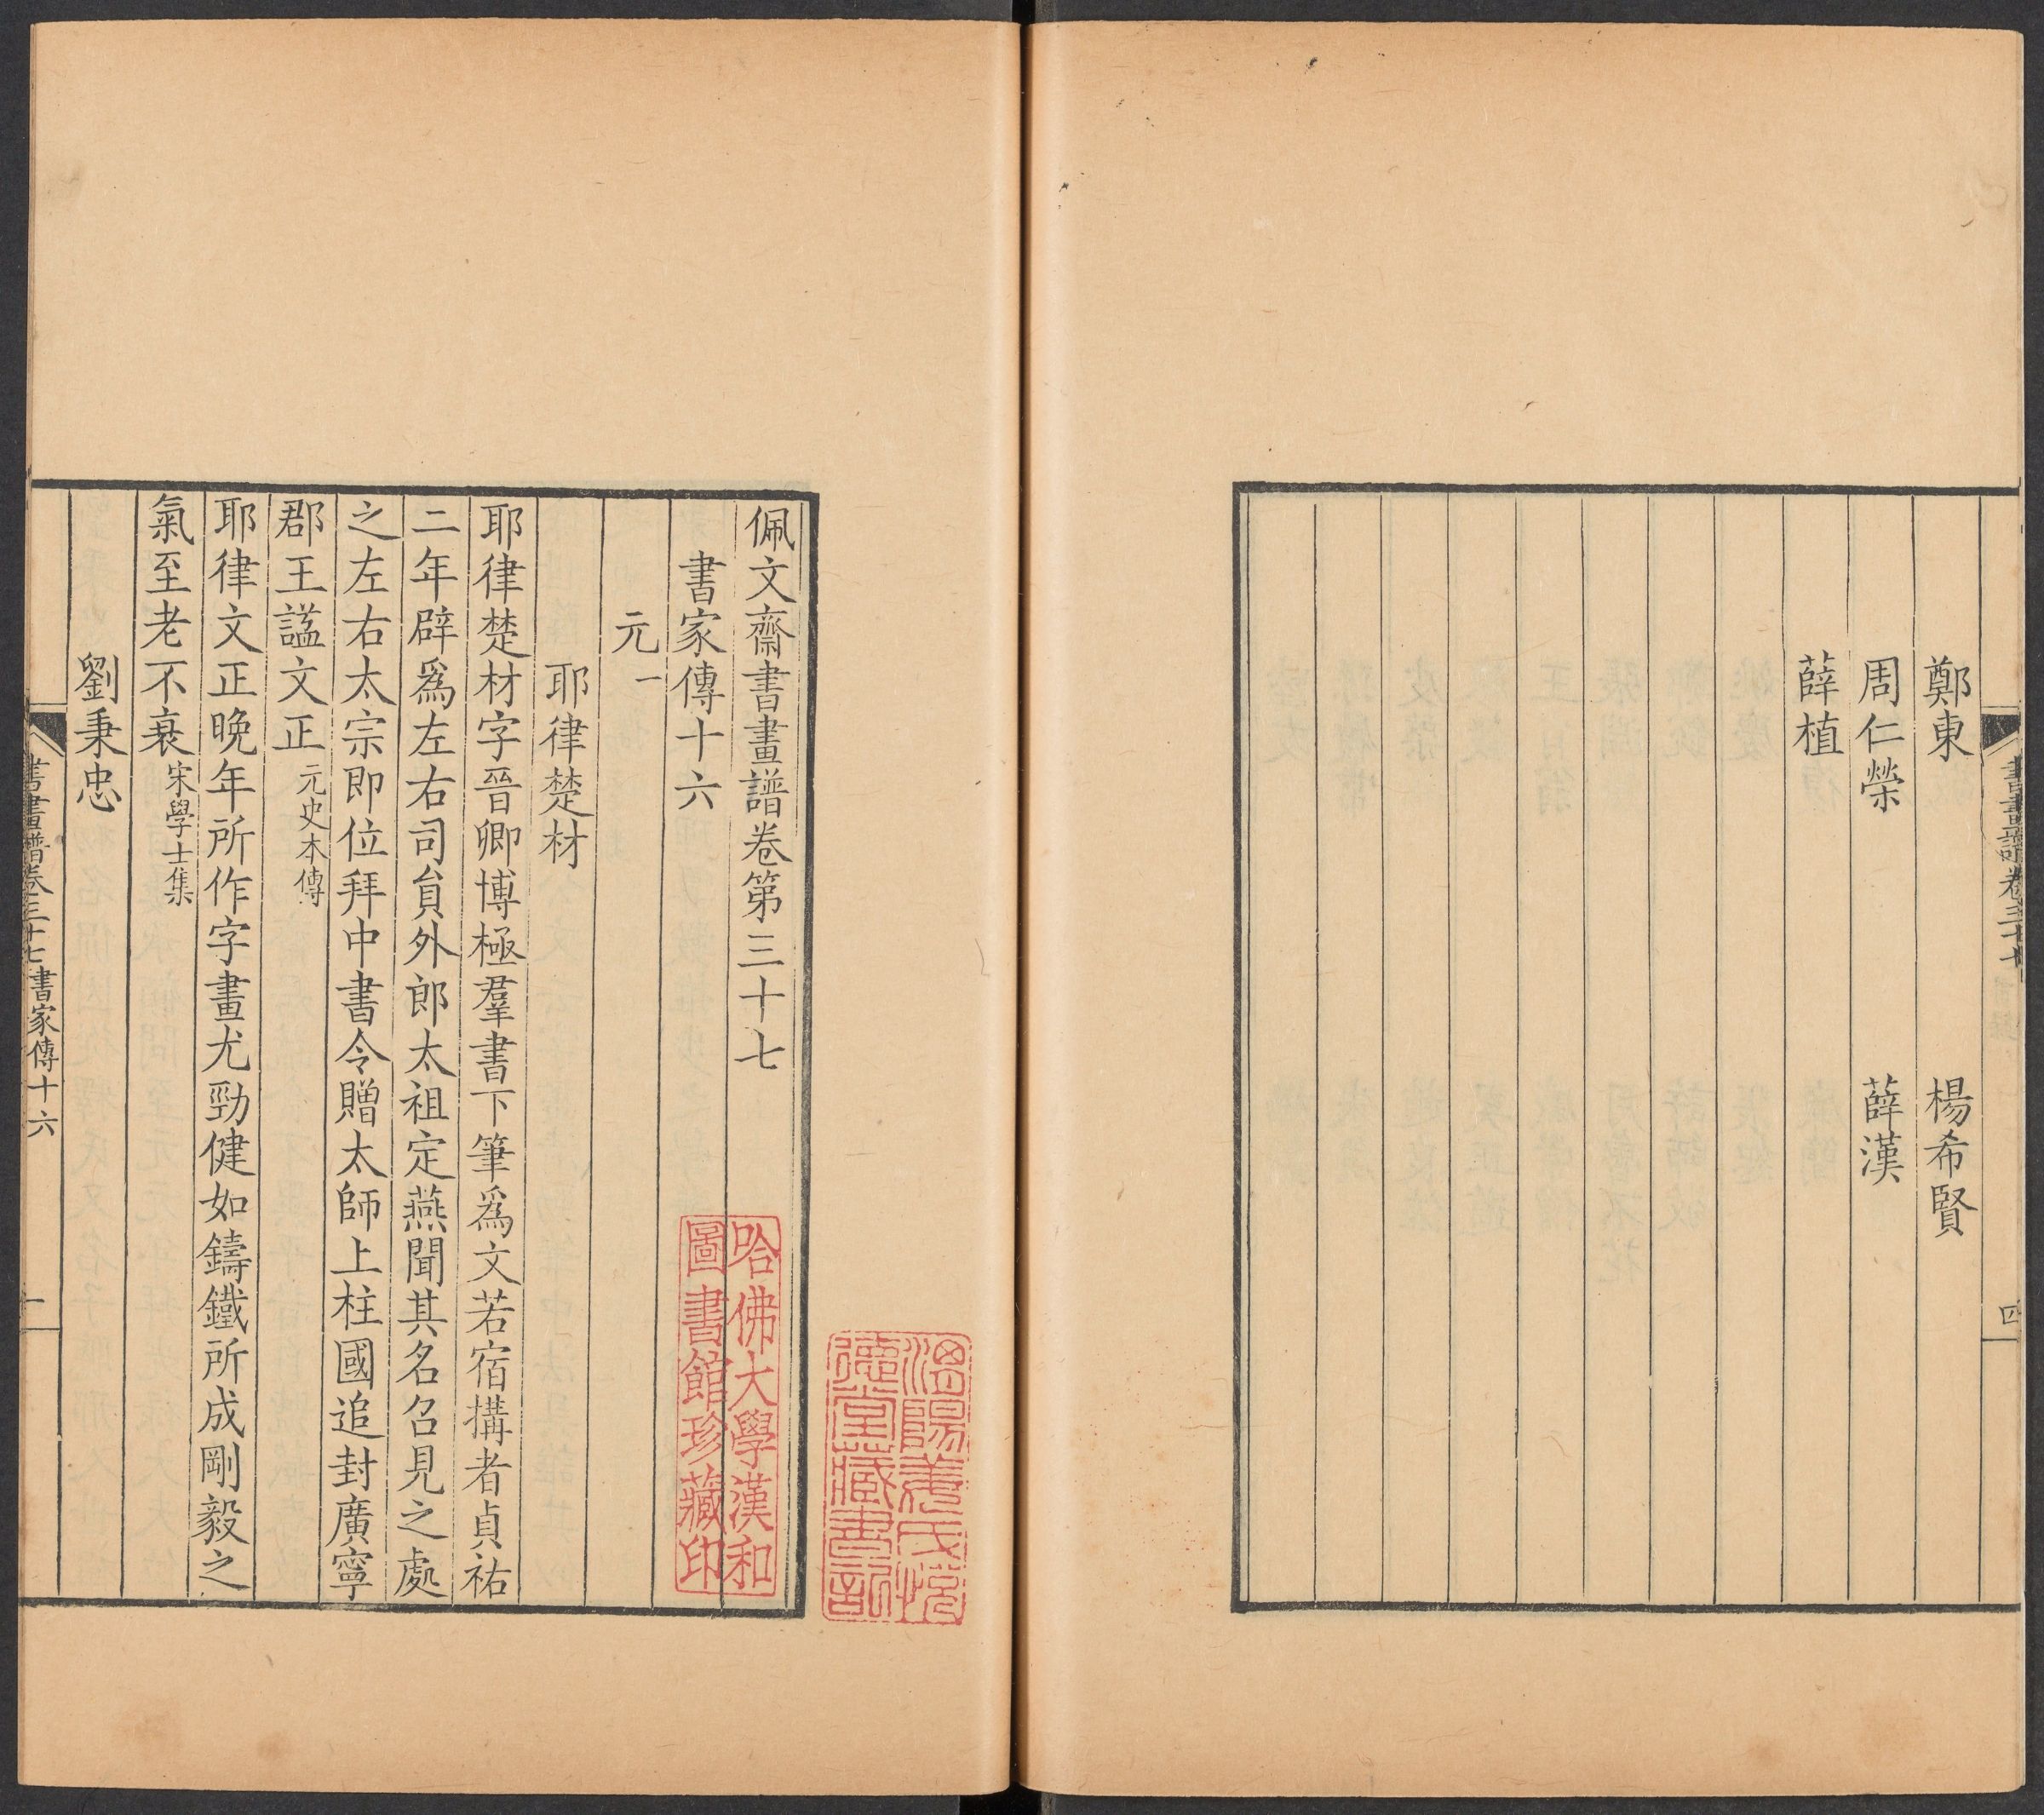 書畫譜卷三十七
四
鄭東　楊希賢
周仁榮　薛漢
薛植
佩文齋書畫譜卷第三十七
書家傳十六
元一
耶律楚材
耶律楚材字晉卿博極羣書下筆爲文若宿搆者貞祐
二年辟爲左右司貟外郎太祖定燕聞其名召見之處
之左右太宗即位拜中書令贈太師上柱國追封廣寧
郡王諡文正元史本傳
耶律文正晚年所作字畫尤勁健如鑄鐵所成剛毅之
氣至老不衰宋學士集
劉秉忠
書畫譜卷三十七書家傳十六
一
哈佛大學漢和
圖書館珍藏印
德堂藏書記